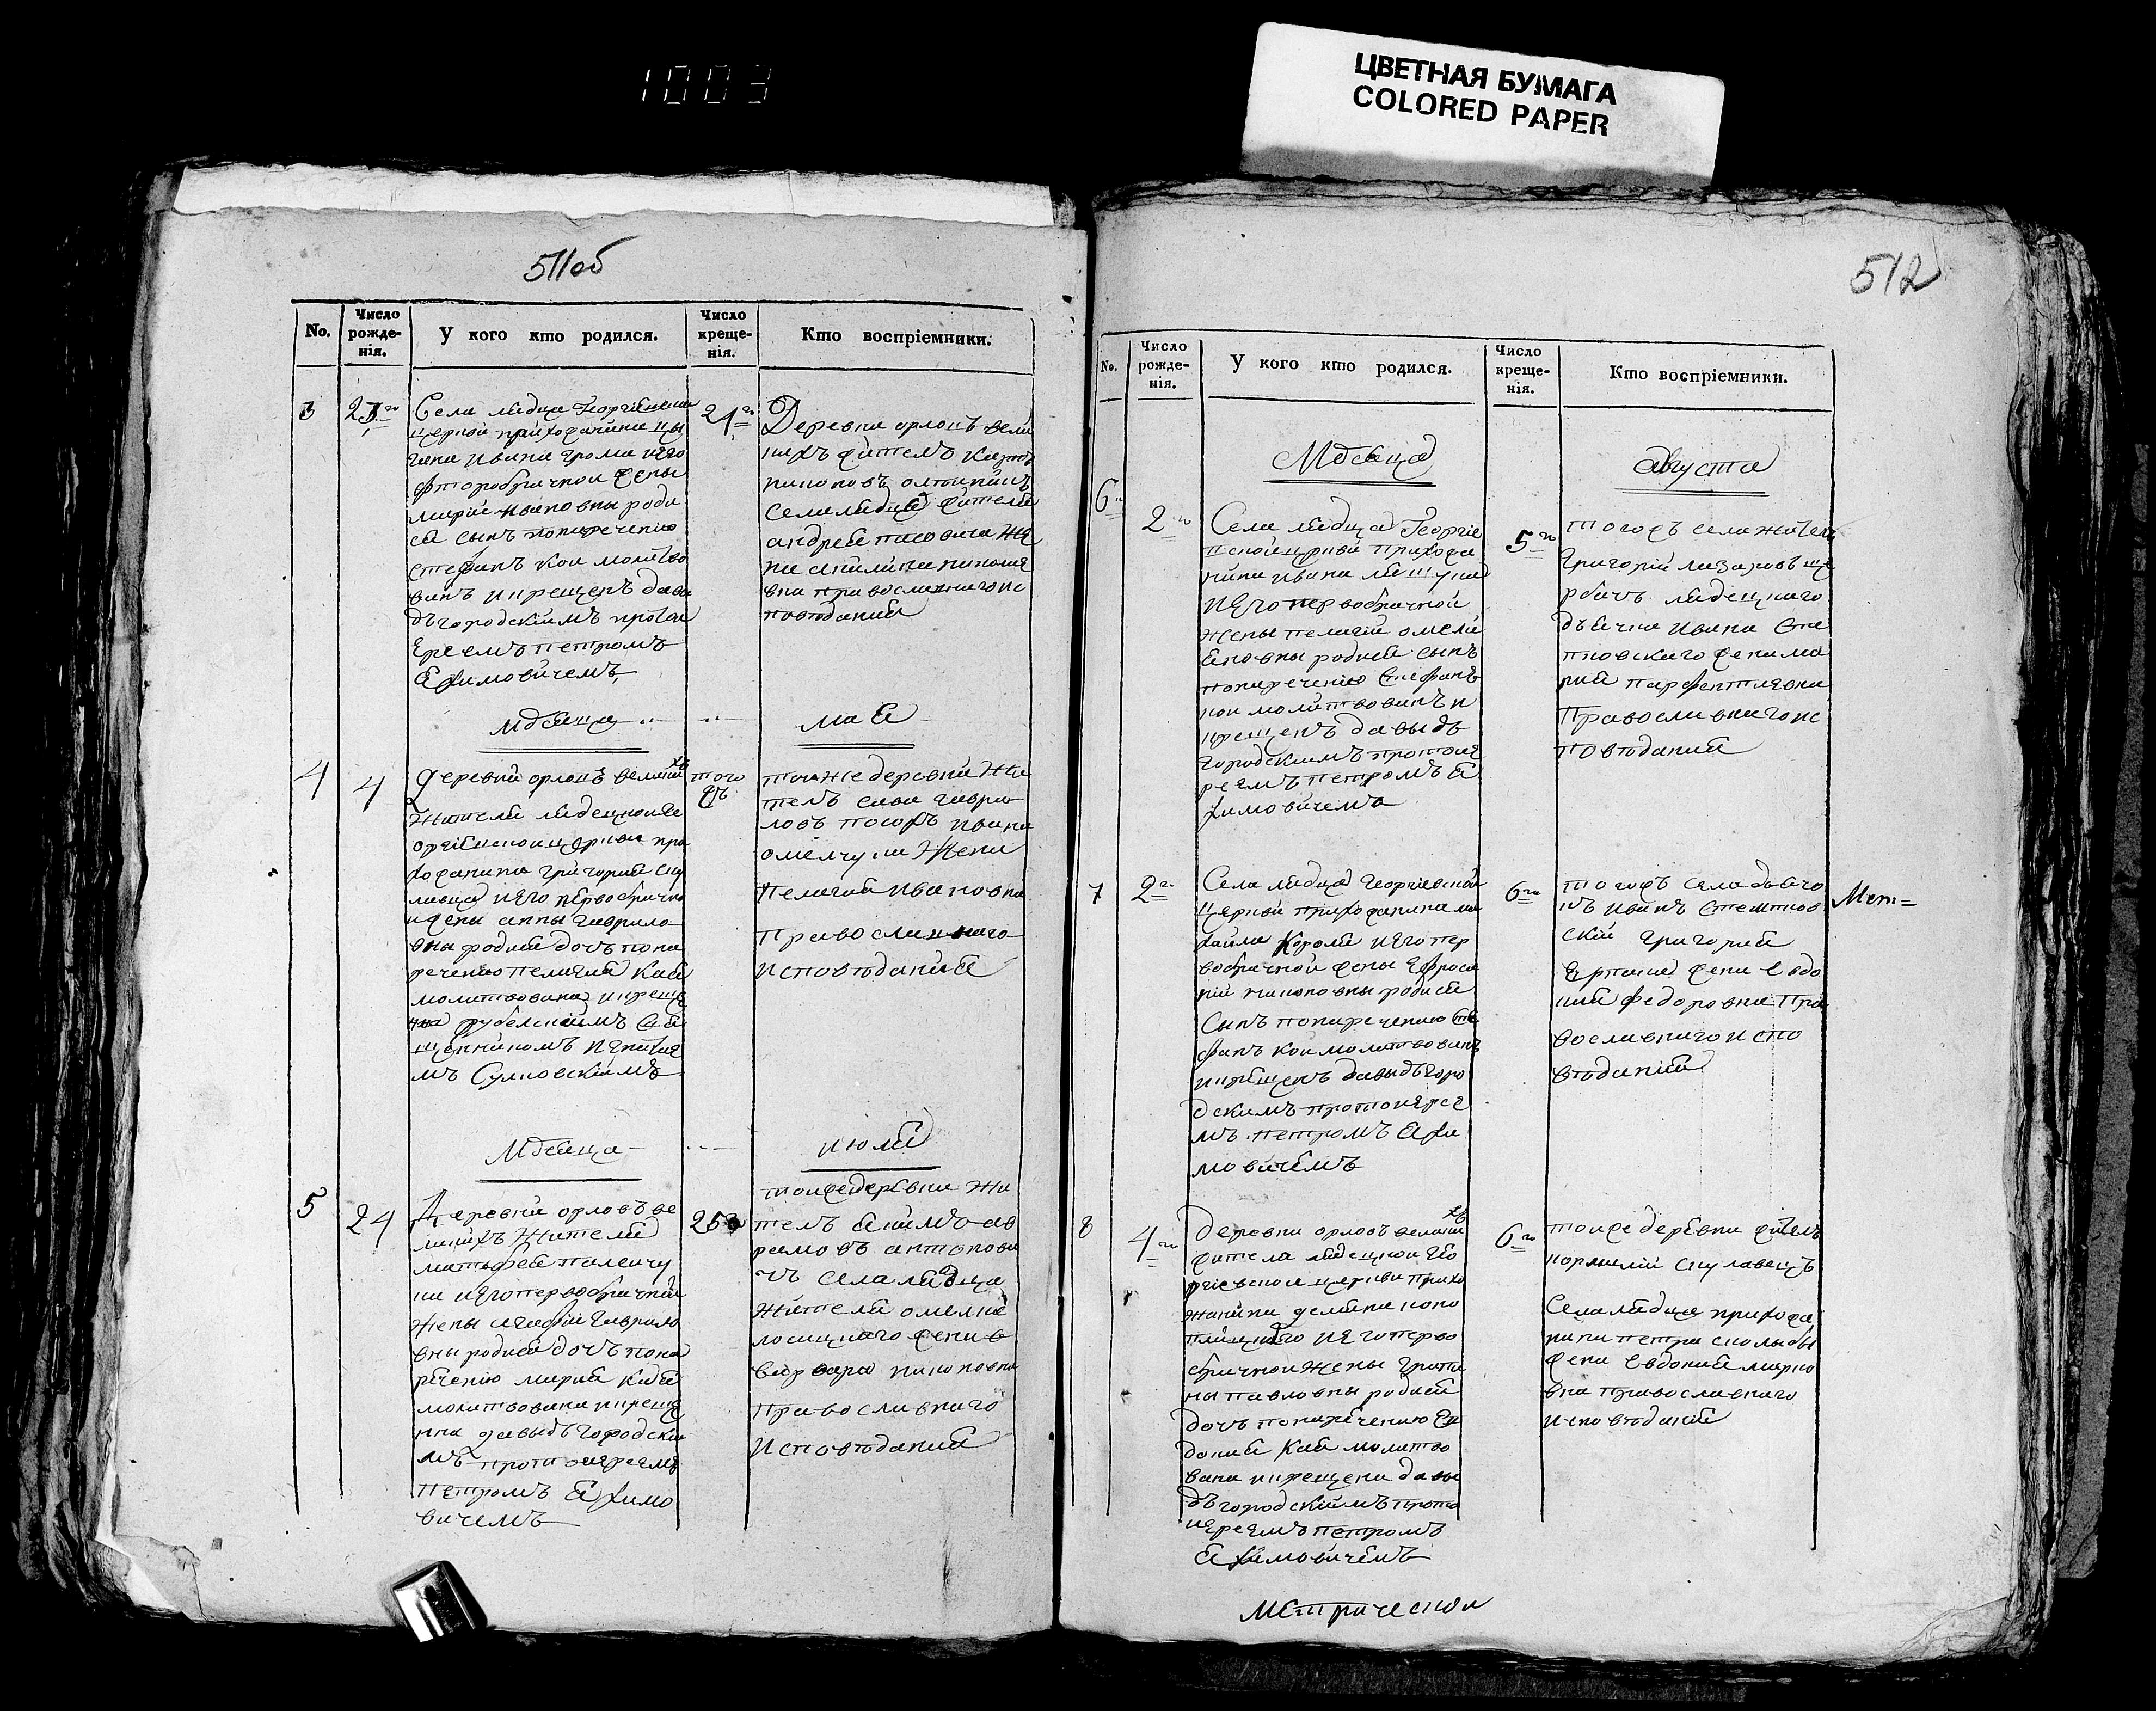 1003
ЦВЕТНАЯ БУМАГА
COLORED PAPER
511об
No.
Число рожде-нія.
У кого кто родился.
Число креще-нія.
Кто воспріемники.
3
23го
Села лядца Георгіевской
церкви прихожанина
Ивана его
фторобрачной жены
марій Ивановны роди
ся сынъ понаречению
стефанъ кои молитво
ванъ икрещенъ давы
дъгородскимъ протои
ереемъ петромъ
Ефимовичемъ
24го
Деревни орловъ вели
кихъ жителъ
села лядца жителя
андрея жe
на акилина никола
евна православнаго ис
поведания
мдсяца
мая
4
4
деревни орловъ великихъ
жителя лядецкои ге
оргіевскои церкви при
хожанина григория ску
лавца иего первобрачно
и жены анны гаврило
вны родися дочъ пона
речению пелагия кая
молитвована икреще
на рубелскимъ свя
щенникомъ игнатие
мъ Сулковскимъ
того
жъ
тоиже деревни жи
телъ сава гаври
ловъ ивана
омелчука жена
пелагия ивановна
православнаго
исповедания
Мдсяца
июля
5
24
Деревни орловъ ве
ликихъ жителя
матьфея паленчу
ка иегопервобрачной
жены агафіи гаврило
вны родися дочъ пона
речению мария кая
молитвована икреще
нна давыдъгородски
мъ протоиереемъ
петромъ Ефимо
вичемъ
25го
тоижедеревни жи
телъ екимъ ав
рамовъ антонови
чъ села лядца
жителя омеляна
лосицкаго жена
варвара никоновна
православнаго
исповедания
512
No.
Число рожде-нія.
У кого кто родился.
Число креще-нія.
Кто воспріемники.
Мдсяца
августа
6
2го
Села лядца Георгие
вскои церкви прихожа
нина ивана
иего первобрачной
жены пелагии омеля
новны родися сынъ
понаречению стефанъ
кои молитвованъ и
крещенъ давыдъ
городскимъ протоие
реемъ петромъ Е
фимовичемъ
5го
тогожъ села житель
григорій лазаровъ ще
рбачъ лядецкаго
дьячка ивана сте
пновскаго жена ма
рия парфентиевна
православнаго ис
поведания
7
2го
Села лядца георгиевской
церкви прихожанина ми
хайла короля иего пер
вобрачной жены ефроси
нии никоновны родися
сынъ понаречению сте
фанъ кои молитвованъ
икрещенъ давыдъгоро
дскимъ протоиерее
мъ петромъ Ефи
мовичемъ
6го
тогожъ села дьячо
къ иванъ степнов
скій григория
жена евдо
кия федоровна пра
вославнаго испо
ведания
Мет=
8
4го
деревни орловъ великихъ
жителя лядецкои гео
ргіевскои церкви прихо
жанина демяна копо
иего перво
брачнои жены
ны павловны родися
дочъ понаречению ев
докия кая молитво
вана икрещена давы
дъгородскимъ прото
иереемъ петромъ
Ефимовичемъ
6го
тоиже деревни жителъ
корнилій скулавецъ
села лядца прихожа
нина петра
жена евдокия марко
вна православнаго
исповедания
метрическои